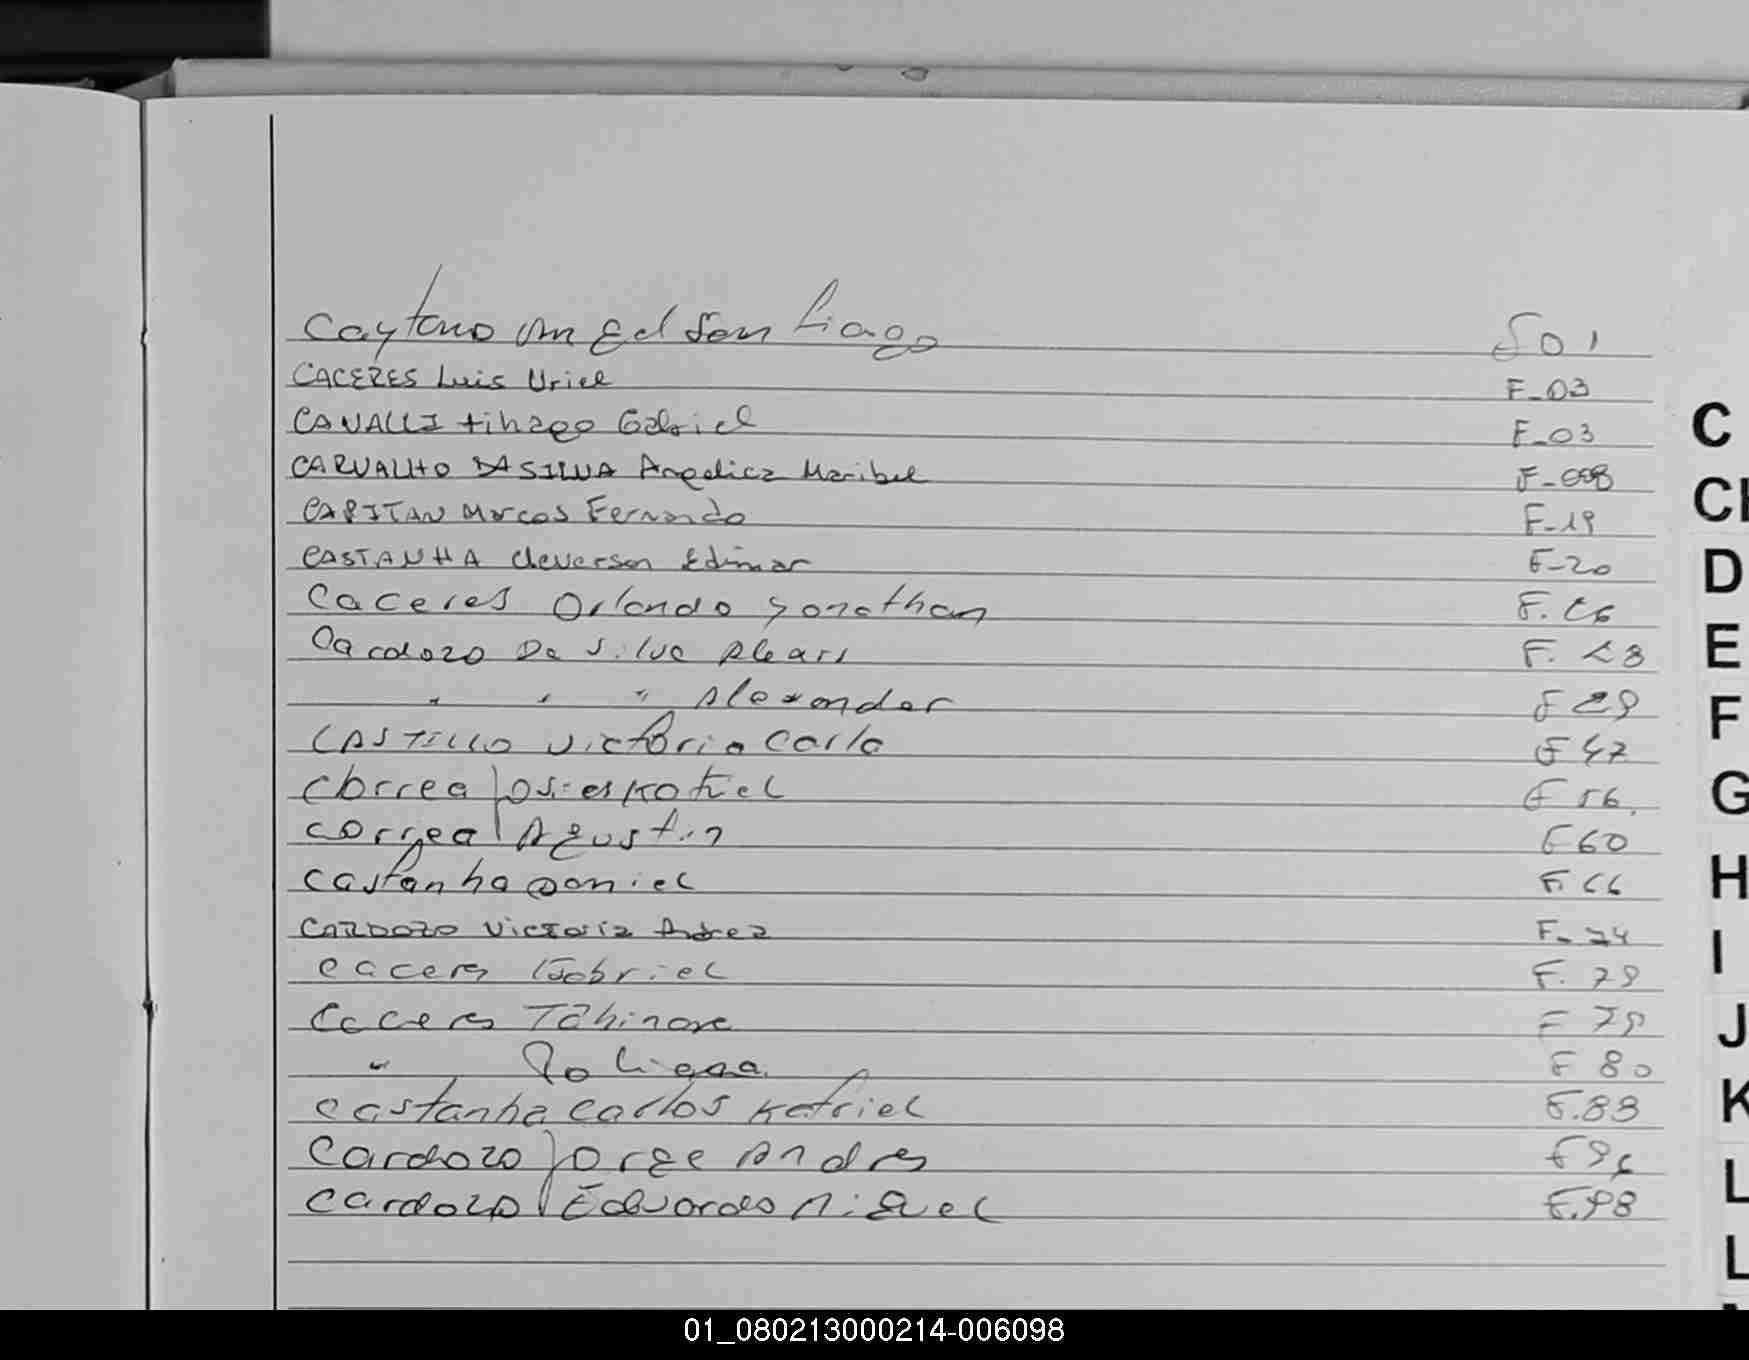 Caytano Angel San tiago F01
CACERES Luis Uriel F-03
CAVALLI tihago Gabriel F-03
CARVALHO DA SILVA Angelica Maribel F-008
CAPITAN Marcos Fernando F-19
CASTANHA Cleverson Edimar F-20
Caceres Orlando Jonathan F. 26
Cardozo Da Silva F. 28
" " " Alexander F 29
CASTILLO Victoria Carla F 47
Correa F 56.
Correa Agustin F 60
Castanha Daniel F. 66
CARDOZO Victoria F-74
Caceres Gabriel F. 79
Caceres F 79
" F 80
Castanha Carlos Katriel F. 83
Cardozo Jorge Andres F 96
Cardozo Eduardo Miguel F. 98
C
D
E
F
G
H
I
J
K
L
L
01_080213000214-006098